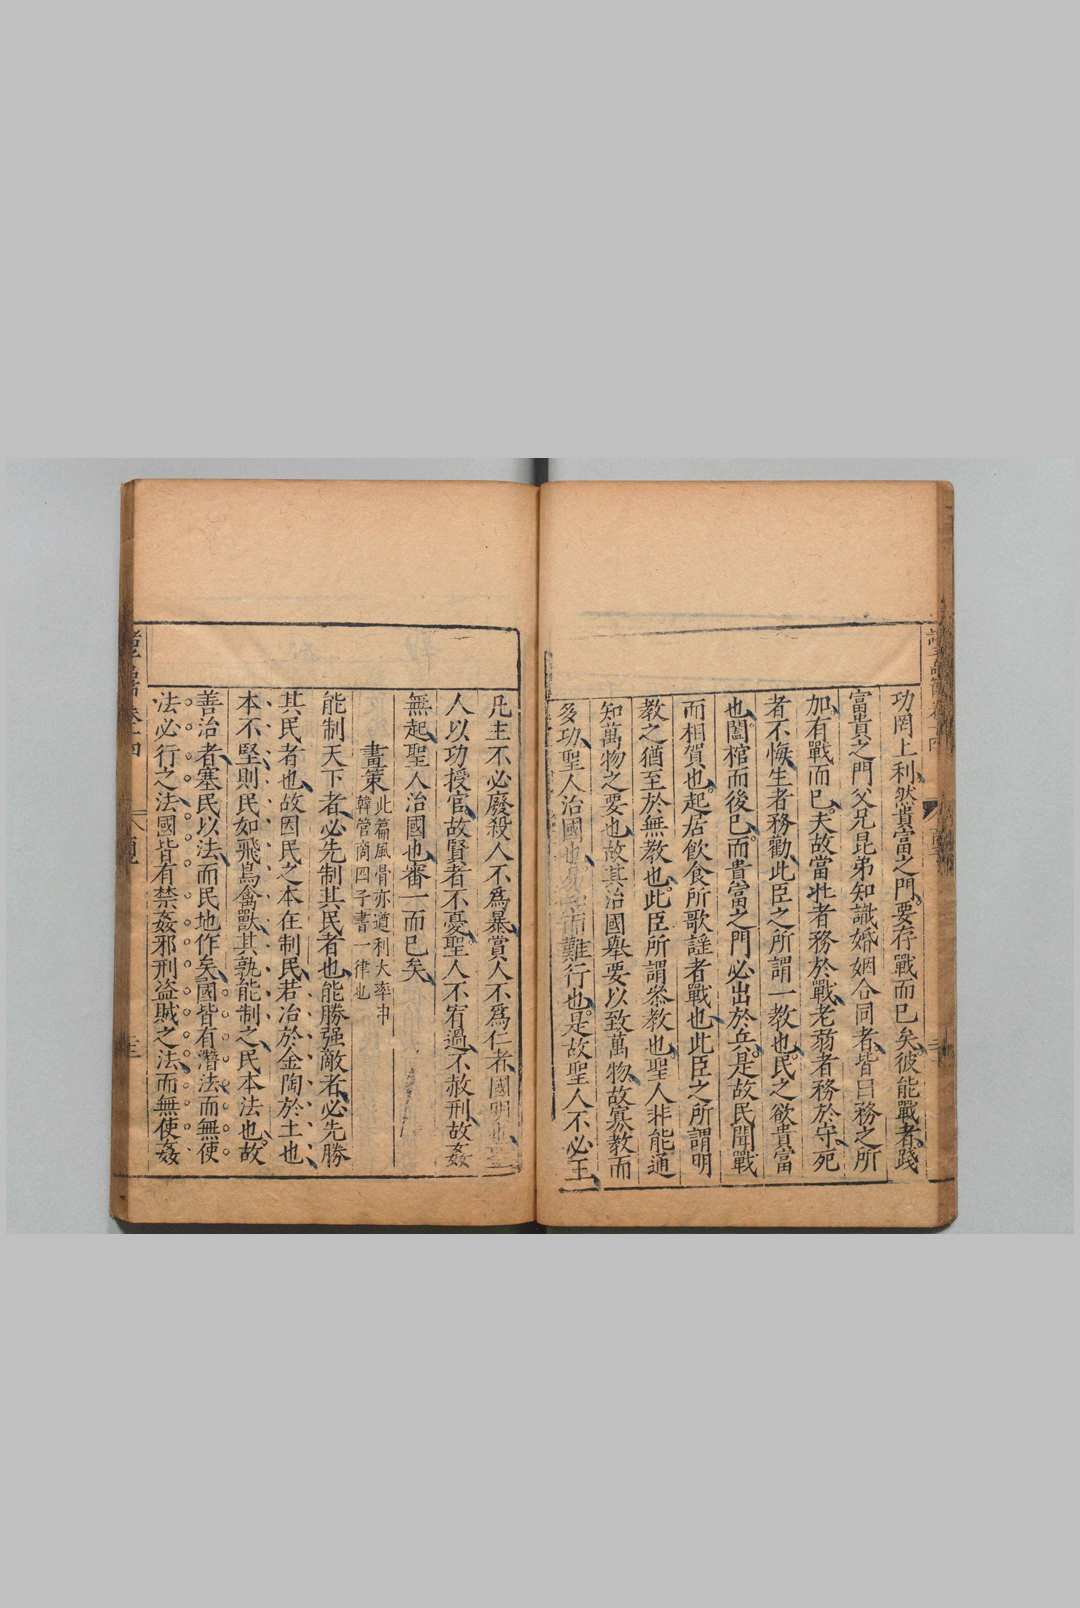 功罔上利然貴富之門要存戰而已矣彼能戰者踐
富貴之門父兄昆弟知識婚姻合同者皆曰務之所
加有戰而已夫故當壯者務於戰老弱者務於守死
者不悔生者務勸此臣之所謂一教也民之欲貴富
也闔棺而後已而貴富之門必出於兵是故民聞戰
而相賀也起居飲食所歌謠者戰也此臣之所謂明
教之猶至於無教也此臣所謂叅教也聖人非能通
知萬物之要也故其治國舉要以致萬物故寡教而
多功聖人治國也易知而難行也是故聖人不必王
凡主不必廢殺人不爲暴賞人不爲仁者國明也聖
人以功授官故賢者不憂聖人不宥過不赦刑故姦
無起聖人治國也審一而已矣
畫策
此篇風骨亦遒利大率申
韓管商四子書一律也
能制天下者必先制其民者也能勝強敵者必先勝
其民者也故因民之本在制民若冶於金陶於土也
本不堅則民如飛鳥禽獸其孰能制之民本法也故
善治者塞民以法而民地作矣國皆有潛法而無使
法必行之法國皆有禁姦邪刑盜賊之法而無使姦
卷十四